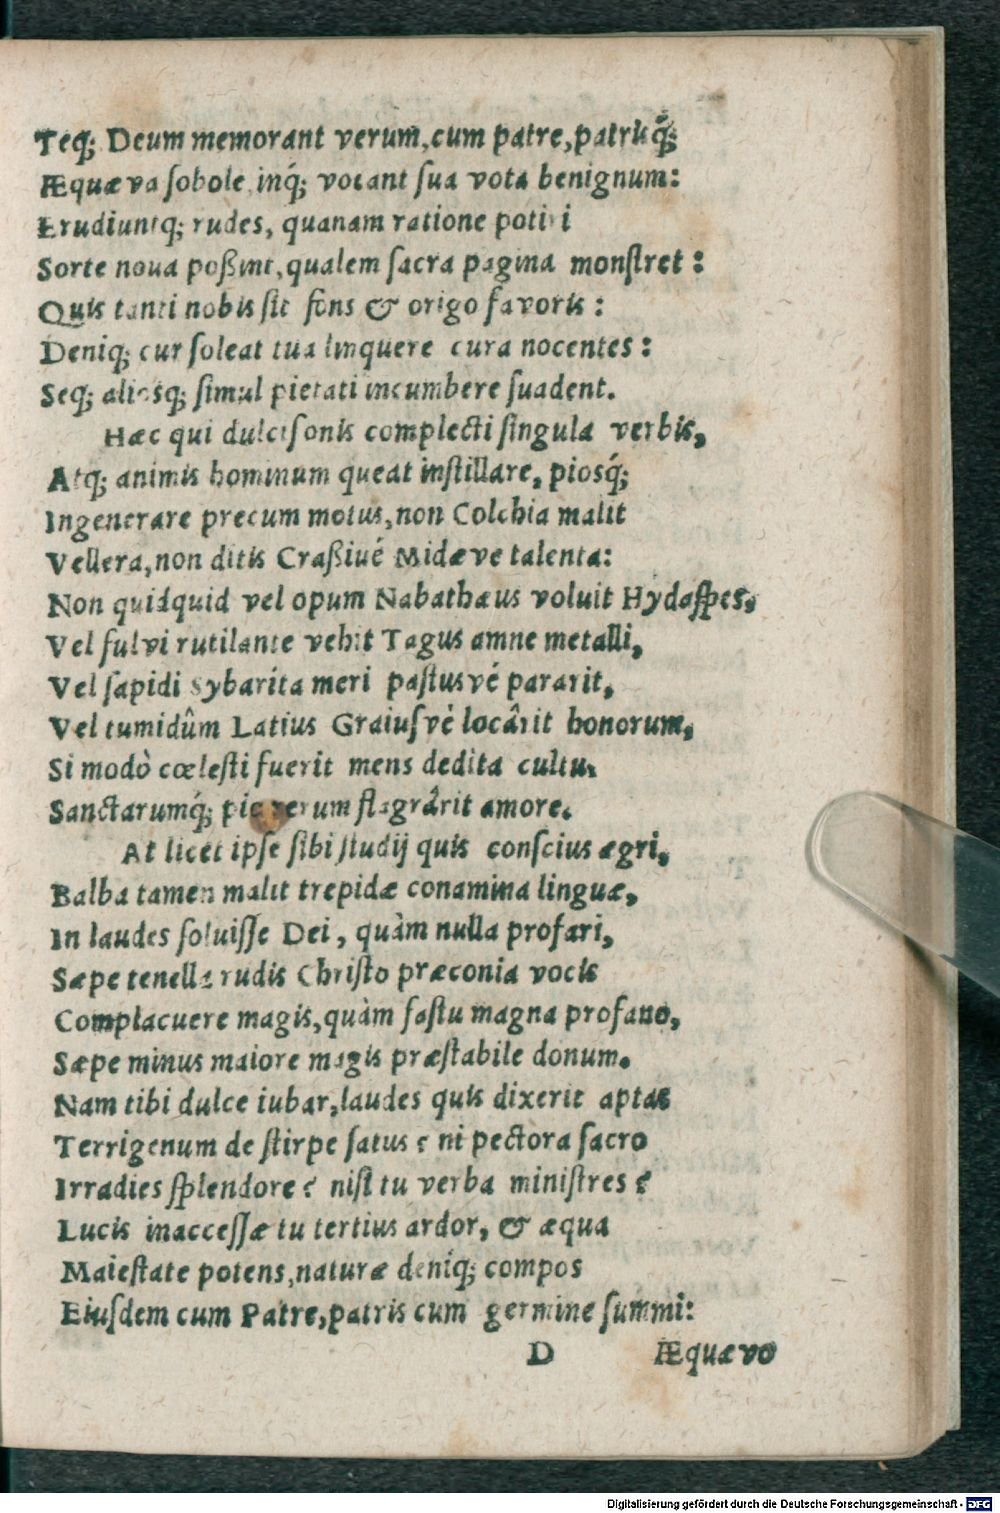 Teq́; Deum memorant verum, cum patre, patrisq́;
Æquæva sobole, inq́; vocant sua vota benignum:
Erudiuntq́; rudes, quanam ratione potiri
Sorte noua poßint, qualem sacra pagina monstret:
Quis tanti nobis sit fons & origo favoris:
Deniq́; cur soleat tua linquere cura nocentes:
Seq́; aliosq́; simul pietati incumbere suadent.
Hæc qui dulcisonis complecti singula verbis,
Atq́; animis hominum queat instillare, piosq́;
Ingenerare precum motus, non Colchia malit
Vellera, non ditis Craßiué Midæve talenta:
Non quidquid vel opum Nabathæus voluit Hydaspes,
Vel fulvi rutilante vehit Tagus amne metalli,
Vel sapidi Sybarita meri pastusvé pararit,
Vel tumidûm Latius Graiusvè locârit honorum,
Si modò cœlesti fuerit mens dedita cultu,
Sanctarumq́; pio rerum flagrârit amore.
At licet ipse sibi studij quis conscius ægri,
Balba tamen malit trepidæ conamina linguæ,
In laudes soluisse Dei, quàm nulla profari,
Sæpe tenella rudis Christo præconia vocis
Complacuere magis, quàm fastu magna profano,
Sæpe minus maiore magis præstabile donum.
Nam tibi dulce iubar, laudes quis dixerit aptas
Terrigenum de stirpe satus? ni pectora sacro
Irradies splendore? nisi tu verba ministres?
Lucis inaccessæ tu tertius ardor, & æqua
Maiestate potens, naturæ deniq́; compos
Eiusdem cum Patre, patris cum germine summi:
D Æquævo
Digitalisierung gefördert durch die Deutsche Forschungsgemeinschaft - DFG